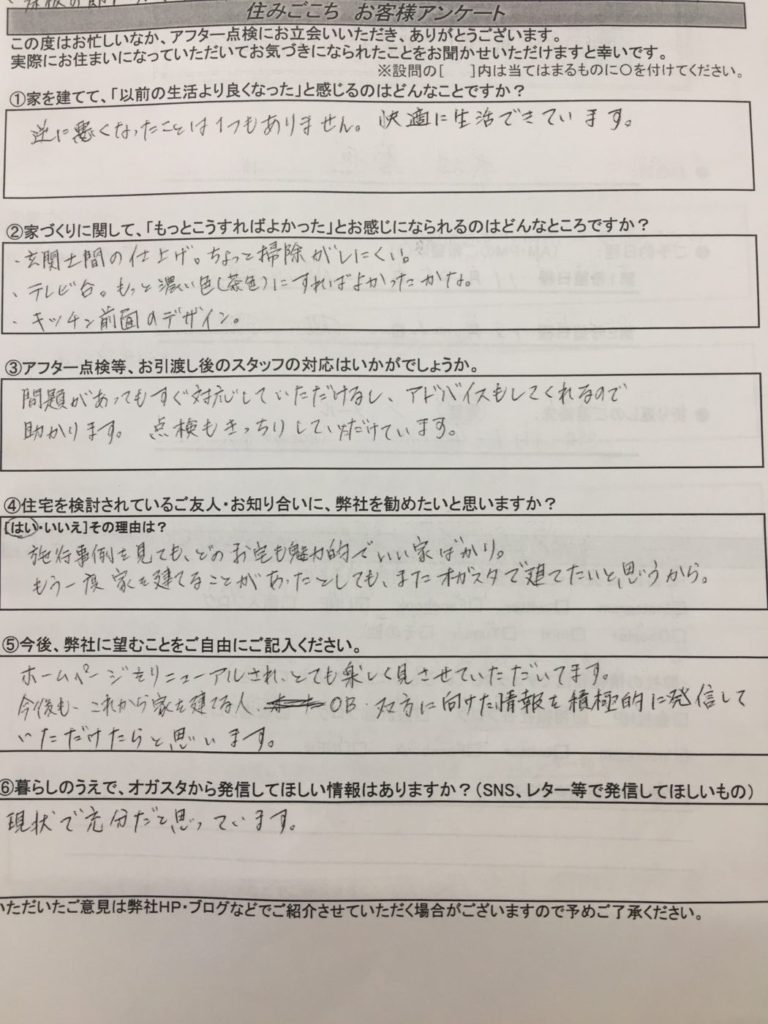 住みごこち お客様アンケート
この度はお忙しいなか、アフター点検にお立会いいただき、ありがとうございます。
実際にお住まいになっていただいてお気づきになられたことをお聞かせいただけますと幸いです。
※設問の[　]内は当てはまるものに○を付けてください。
①家を建てて、「以前の生活より良くなった」と感じるのはどんなことですか？
逆に悪くなったことは1つもありません。快適に生活できています。
②家づくりに関して、「もっとこうすればよかった」とお感じになられるのはどんなところですか？
・玄関土間の仕上げ。ちょっと掃除がしにくい。
・テレビ台。もっと濃い色(茶色)にすればよかったかな。
・キッチン前面のデザイン。
③アフター点検等、お引渡し後のスタッフの対応はいかがでしょうか。
問題があってもすぐ対応していただけるし、アドバイスもしてくれるので
助かります。 点検もきっちりしていただけています。
④住宅を検討されているご友人・お知り合いに、弊社を勧めたいと思いますか？
[はい・いいえ]その理由は？
施行事例を見ても、どのお宅も魅力的でいい家ばかり。
もう一度家を建てることがあったとしても、またオガスタで建てたいと思うから。
⑤今後、弊社に望むことをご自由にご記入ください。
ホームページをリニューアルされ、とても楽しく見させていただいてます。
今後も、これから家を建てる人・OB・双方に向けた情報を積極的に発信して
いただけたらと思います。
⑥暮らしのうえで、オガスタから発信してほしい情報はありますか？（SNS、レター等で発信してほしいもの）
現状で充分だと思っています。
いただいたご意見は弊社HP・ブログなどでご紹介させていただく場合がございますので予めご了承ください。